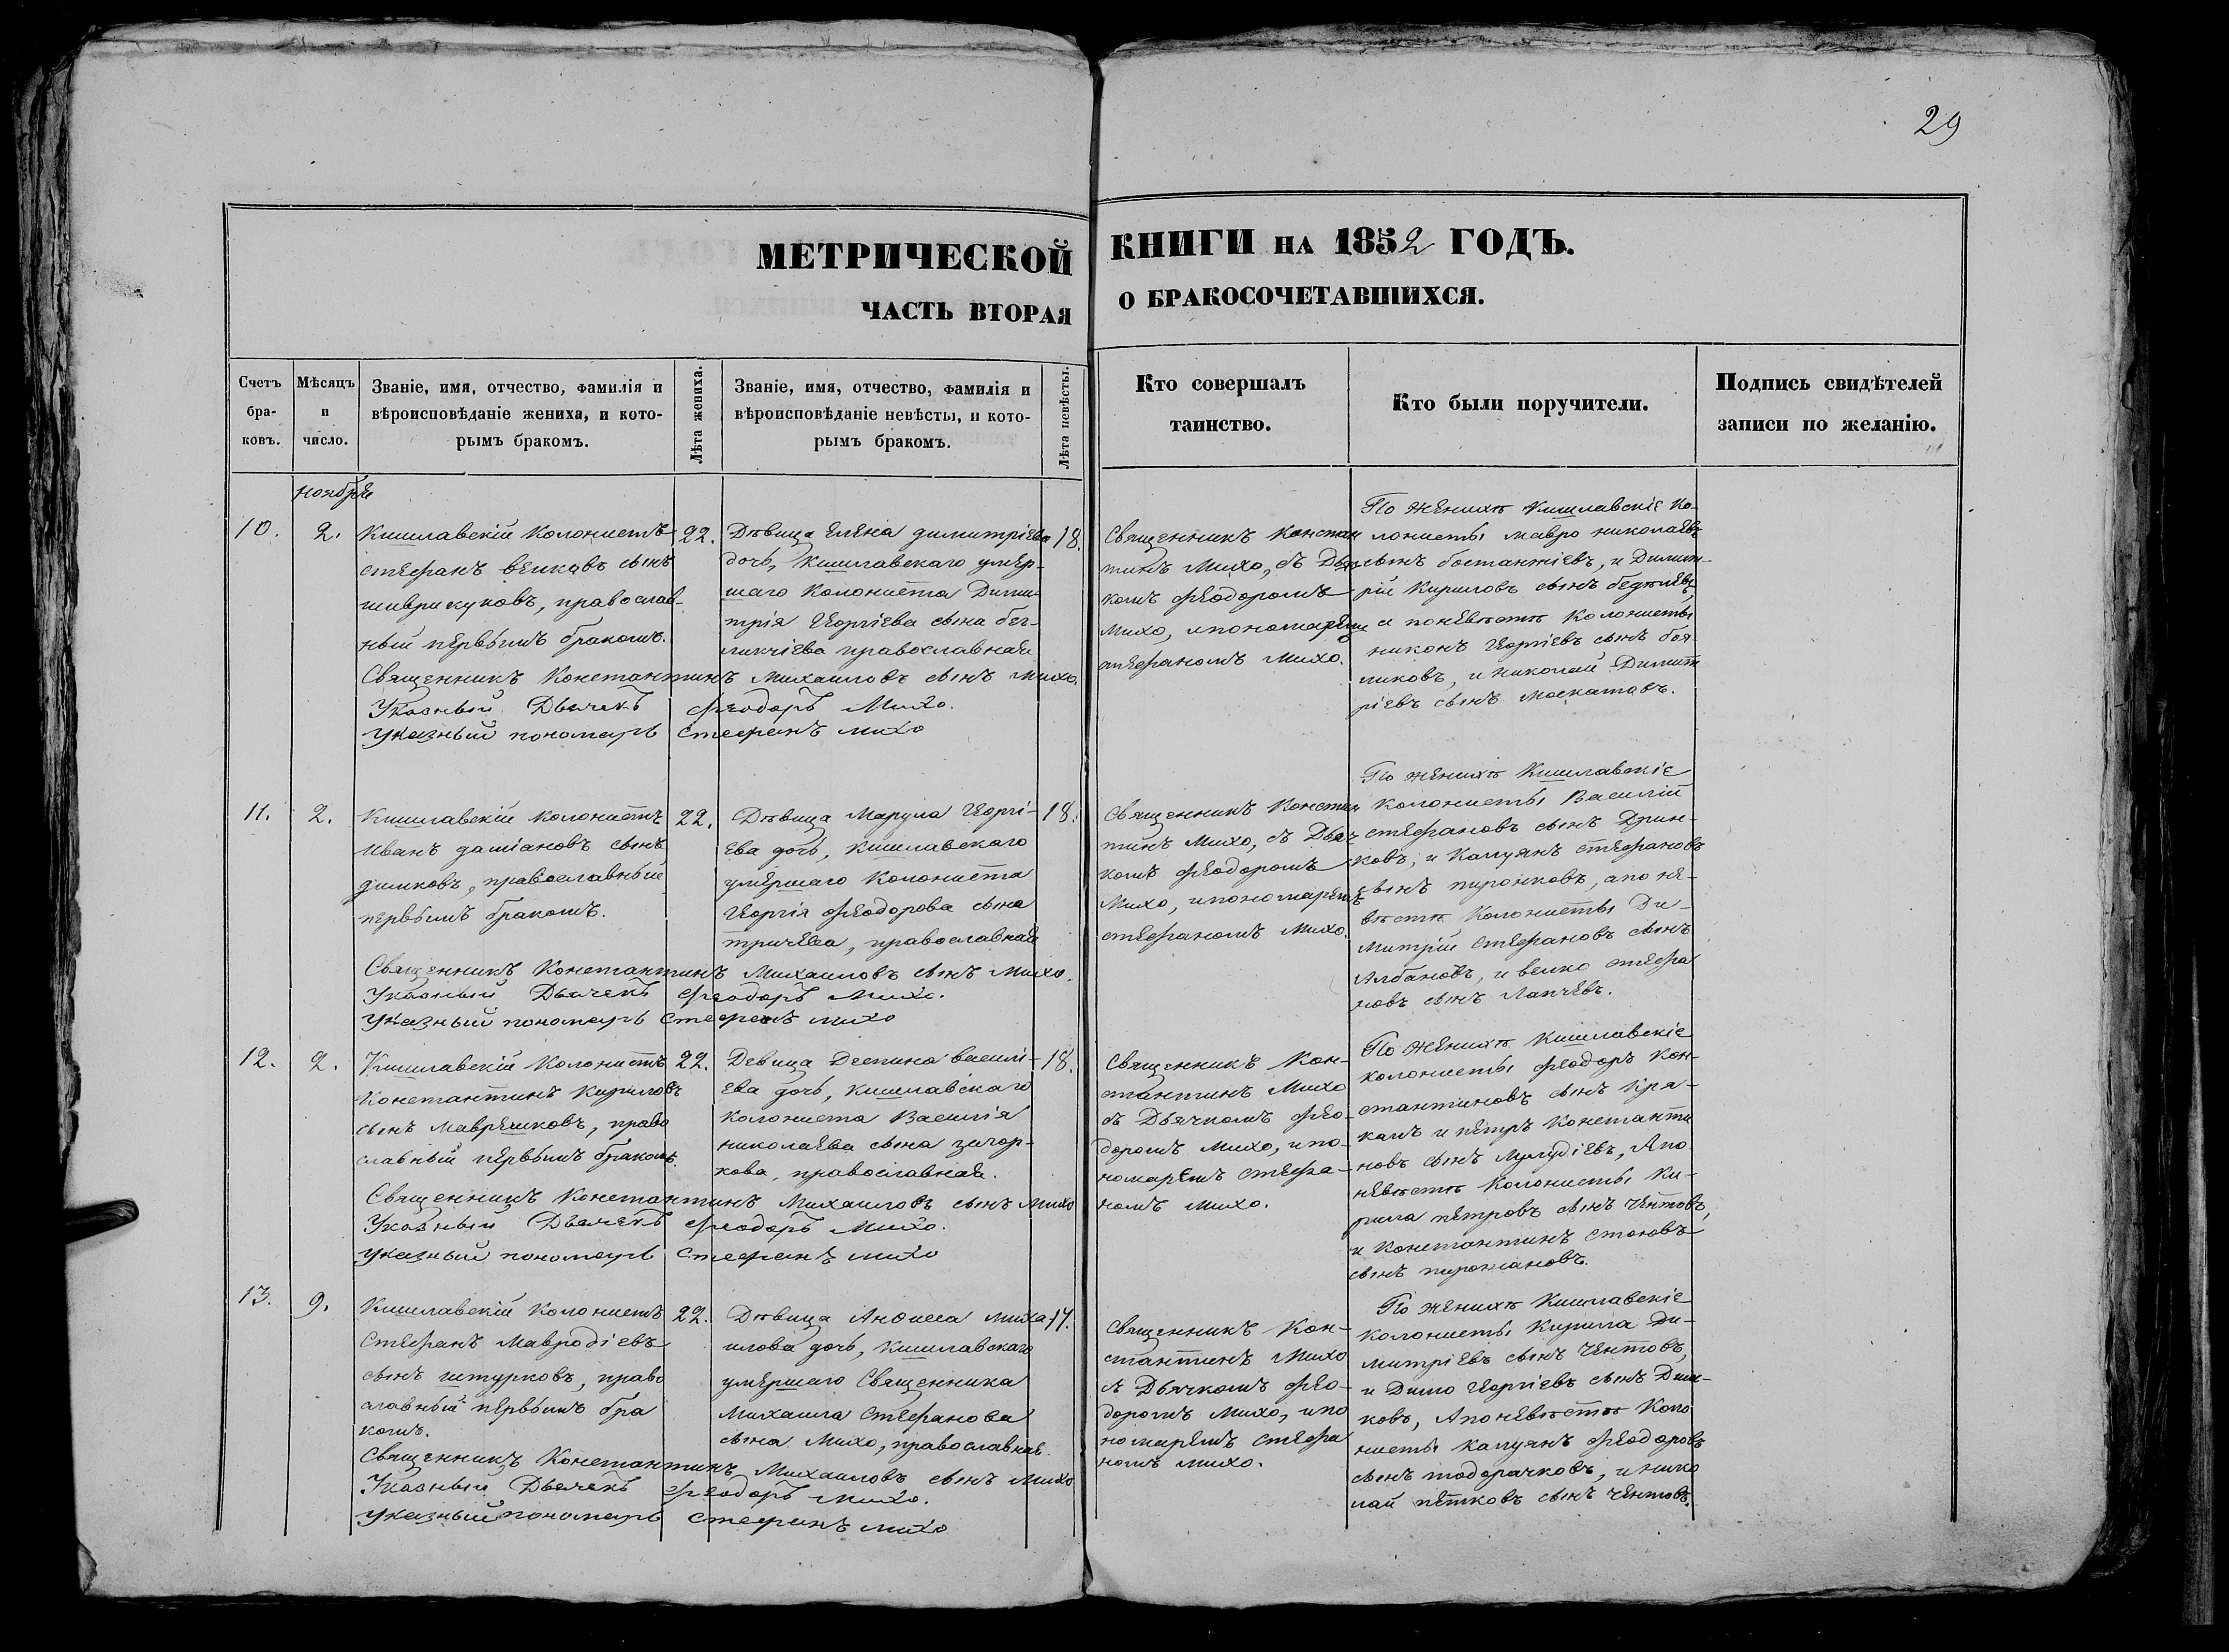 29
МЕТРИЧЕСКОЙ КНИГИ НА 1852 ГОДЪ.
ЧАСТЬ ВТОРАЯ О БРАКОСОЧЕТАВШИХСЯ.
Счетъ бра-ковъ.
Мѣсяцъ и число.
Званіе, имя, отчество, фамилія и вѣроисповѣданіе жениха, и кото-рымъ бракомъ.
Лѣта жениха.
Званіе, имя, отчество, фамилія и вѣроисповѣданіе невѣсты, и кото-рымъ бракомъ.
Лѣта невѣсты.
Кто совершалъ таинство.
Кто были поручители.
Подпись свидѣтелей записи по желанію.
ноября
10.
2.
Кишлавскій Колонистъ
стефанъ велковъ сынъ
православ-
ный первымъ бракомъ.
22.
Дѣвица елена димитріева
дочь, Кишлавскаго умер-
шаго Колониста Дими
трія Георгіева сына бег-
ликчіева православная
18.
Священникъ Констан
тинъ Михо, съ Дьяч
комъ феодоромъ
Михо, ипономаремъ
стефаномъ Михо.
По женихѣ Кишлавскіе Ко-
лонисты мавро николаевъ
сынъ бостанжіевъ, и Димит-
рій Кириловъ сынъ беджаевъ,
а поневѣстѣ Колонисты
никонъ Георгіевъ сынъ боя
ликовъ, и николай Димит
ріевъ сынъ москатовъ.
Священникъ Константинъ Михаиловъ сынъ Михо.
Указный Дьячекъ феодоръ Михо.
Указный пономарь Стефанъ михо
11.
2.
Кишлавскій колонистъ
Иванъ даміановъ сынъ
димковъ, православный
первымъ бракомъ.
22.
Дѣвица Марула Георгі-
ева дочь, Кишлавскаго
умершаго Колониста
Георгія феодорова сына
тричева, православная
18.
Священникъ Констан
тинъ Михо, съ Дьяч
комъ феодоромъ
Михо, ипономаремъ
стефаномъ Михо.
По женихѣ Кишлавскіе
колонисты Василій
стефановъ сынъ Дрин-
ковъ, и Калуянъ стефановъ
сынъ пиронковъ, апо не-
вѣстѣ Колонисты Ди-
митрій стефановъ сынъ
Албановъ, и велко стефа
новъ сынъ Лапчевъ.
Священникъ Константинъ Михаиловъ сынъ Михо.
Указный Дьячекъ феодоръ Михо.
Указный пономарь Стефанъ михо
12.
2.
Кишлавскій Колонистъ
Константинъ Кириловъ
сынъ Маврешковъ, право
славный первымъ бракомъ.
22.
Девица Деспина василі-
ева дочь, кишлавскаго
колониста Василія
николаева сына загор-
кова, православная.
18.
Священникъ Кон-
стантинъ Михо
съ Дьячкомъ фео-
доромъ Михо, ипо-
номаремъ стефа-
номъ михо.
По женихѣ Кишлавскіе
колонисты феодоръ Кон-
стантиновъ сынъ Кра-
камъ и петръ Константи
новъ сынъ Апо
невѣстѣ Колонисты Ки-
рила петровъ сынъ Чентовъ,
и Константинъ стоювъ
сынъ пирожановъ.
Священникъ Константинъ Михаиловъ сынъ Михо
Указный Дьячекъ феодоръ Михо.
Указный пономарь Стефанъ михо
13.
9.
Кишлавскій Колонистъ
Стефанъ Мавродіевъ
сынъ штурковъ, право
славный первымъ бра
комъ.
22.
Дѣвица Анфиса миха
илова дочь, Кишлавскаго
умершаго Священника
Михаила Стефанова
сына Михо, православная.
17.
Священникъ Кон-
стантинъ Михо
съ Дьячкомъ фео-
доромъ Михо, ипо
номаремъ стефа
номъ михо.
По женихѣ Кишлавскіе
колонисты Кирила Ди-
митріевъ сынъ Чентовъ,
и Димо Георгіевъ сынъ Дим-
ковъ, Апоневѣстѣ Коло
нисты калуянъ феодоровъ
сынъ тодорачковъ, инико
лай петковъ сынъ чентовъ.
Священникъ Константинъ Михаиловъ сынъ Михо
Указный Дьячекъ феодоръ Михо.
Указный пономарь Стефанъ михо